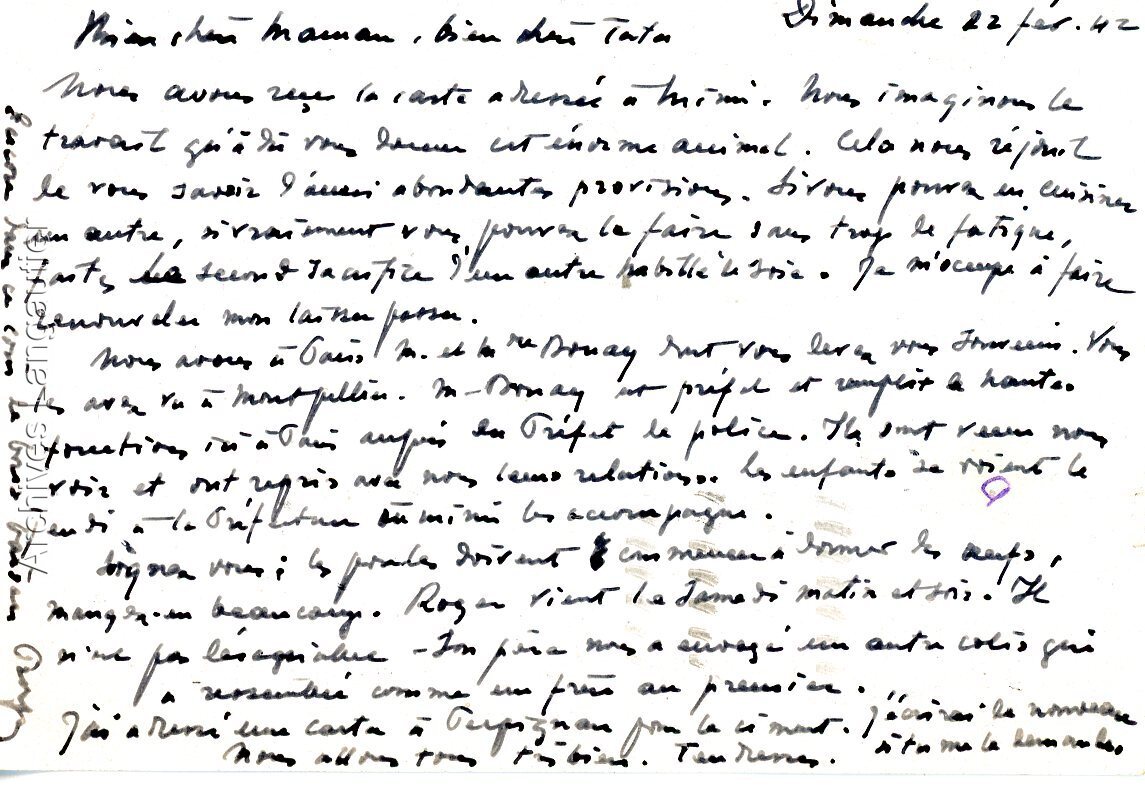 Dimanche 22 fév. 42
Bien chère Maman, bien chère Tata
Nous avons reçu la carte adressée à Mimi. Nous imaginons le
travail qu'a dû vous donner cet énorme animal. Cela nous réjouit
de vous savoir d'aussi abondantes provisions. Si vous pouvez en cuisiner
un autre, si vraiment vous pouvez le faire sans trop de fatigue,
faites le second sacrifice d'un autre habillé de soie. Je m'occupe à faire
renouveler mon laissez passer.
Nous avons à Paris M. et Mme Bonay dont vous devez vous souvenir. Vous
les avez vu à Montpellier. M. Bonay est préfet et remplit de hautes
fonctions ici à Paris auprès du Préfet de police. Ils sont venus nous
voir et ont repris avec nous leurs relations. Les enfants se voient le
à la Préfecture où Mimi les accompagne.
Soignez vous ; les poules doivent commencer à donner des oeufs,
mangez-en beaucoup. Roger vient le Samedi matin et soir. Il
n'est pas désagréable - Son père nous a envoyé un autre colis qui
a ressemblé comme un frère au premier.
J'ai adressé une carte à Perpignan pour le ciment. J'écrirai de nouveau
si tu me le demandes
Nous allons tous très bien. Tendresses.
Archives-Fangeaud.fr